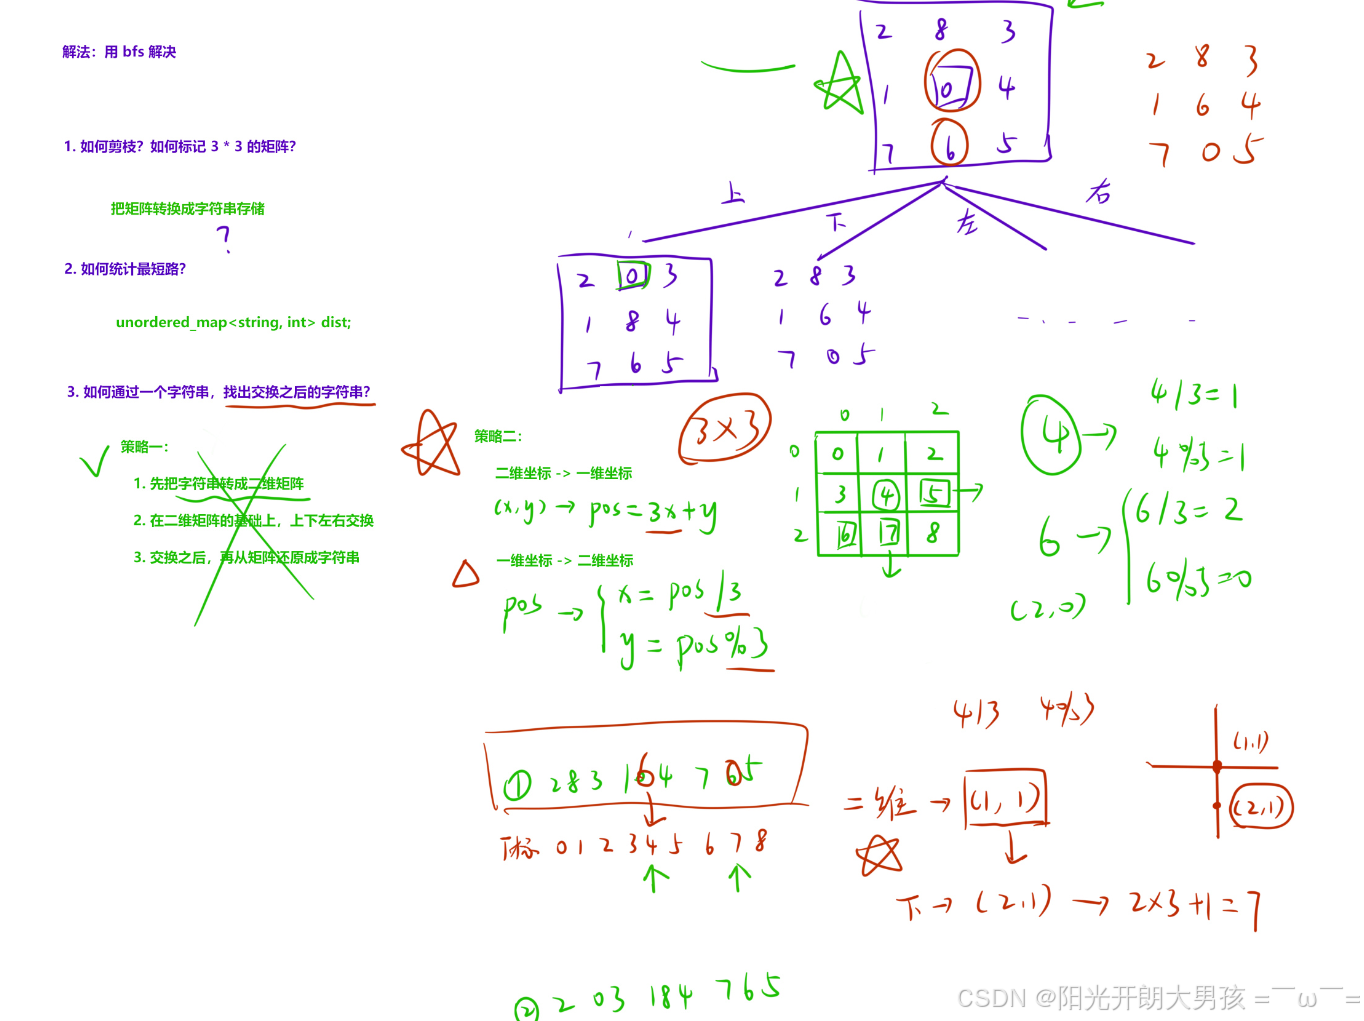 解法：用 bfs 解决
1. 如何剪枝？如何标记 3 * 3 的矩阵？
把矩阵转换成字符串存储
?
2. 如何统计最短路？
unordered_map<string, int> dist;
3. 如何通过一个字符串，找出交换之后的字符串？
策略一：
1. 先把字符串转成二维矩阵
2. 在二维矩阵的基础上，上下左右交换
3. 交换之后，再从矩阵还原成字符串
2 8 3
1 0 4
7 6 5
2 8 3
1 6 4
7 0 5
上 下 左 右
2 0 3
1 8 4
7 6 5
2 8 3
1 6 4
7 0 5
策略二：
3×3
二维坐标 -> 一维坐标
(x,y) → pos = 3x+y
一维坐标 -> 二维坐标
pos → x = pos / 3
y = pos % 3
0 1 2
0 0 1 2
1 3 4 5
2 6 7 8
4 → 4/3=1
4%3=1
6 → 6/3=2
6%3=0
(2,0)
① 283 164 705
下标 0 1 2 3 4 5 6 7 8
4/3 4%3
二维 → (1,1)
下 → (2,1) → 2×3+1=7
(1,1)
(2,1)
② 2 03 184 765
CSDN @阳光开朗大男孩 =￣ω￣=